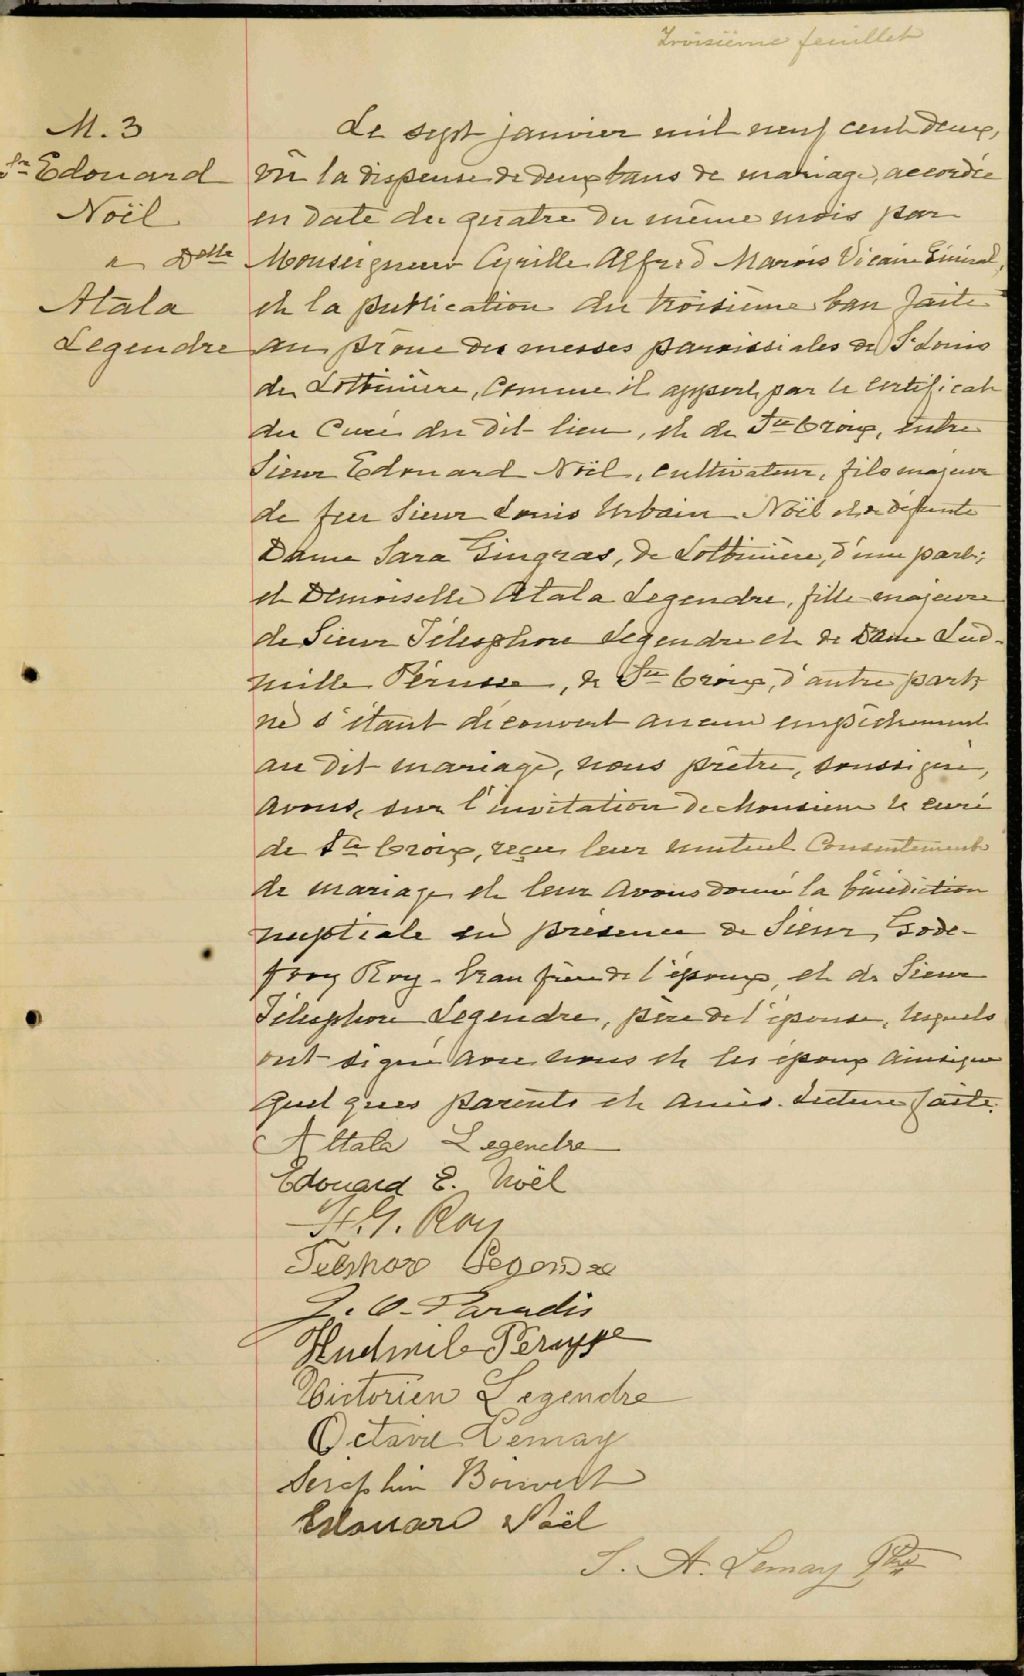 Troisième feuillet
M. 3
Sr Edouard
Noël
& Delle
Atala
Legendre
Le sept janvier mil neuf cent deux,
vû la dispense de deux bans de mariage, accordée
en date du quatre du même mois par
Monseigneur Cyrille Alfred Marois Vicaire Général,
et la publication du troisième ban faite
au prône des messes paroissiales de St Louis
de Lotbinière, comme il appert par le certificat
du Curé du dit lieu, et de Ste Croix, entre
Sieur Edouard Noël, cultivateur, fils majeur
de feu Sieur Louis Urbain Noël et de défunte
Dame Sara Gingras, de Lotbinière, d'une part;
et Demoiselle Atala Legendre, fille majeure
de Sieur Télesphore Legendre et de Dame Lud-
mille Pérusse, de Ste Croix, d'autre part;
ne s'étant découvert aucun empêchement
au dit mariage, nous prêtre, soussigné,
avons, sur l'invitation de Monsieur le curé
de Ste Croix, reçu leur mutuel consentement
de mariage et leur avons donné la bénédiction
nuptiale en présence de Sieur Gode-
froy Roy - beau frère de l'époux, et de Sieur
Télesphore Legendre, père de l'épouse, lesquels
ont signé avec nous et les époux ainsi que
quelques parents et amis. Lecture faite.
Attala Legendre
Edouard E. Noël
H. G. Roy
Telsphore Legendre
J. O. Paradis
Hudmile Perusse
Victorien Legendre
Octavie Lemay
Seraphin Boisvert
Edouard Noël
S. A. Lemay Ptre